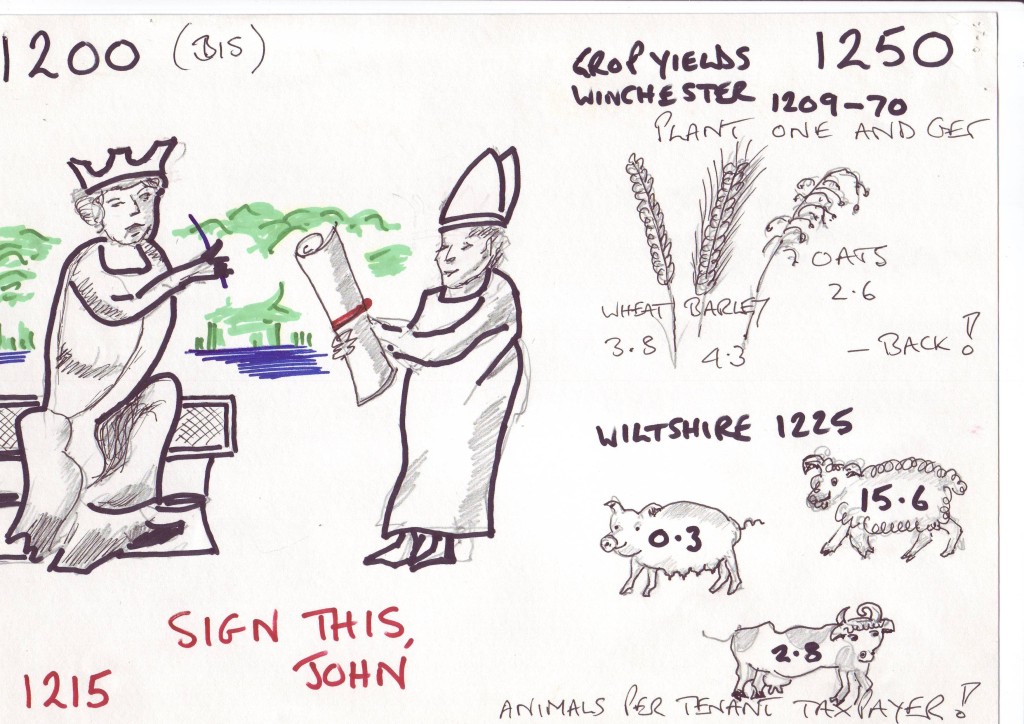 1200 (BIS)
SIGN THIS,
JOHN
1215
1250
CROP YIELDS
WINCHESTER 1209-70
PLANT ONE AND GET
WHEAT
3.8
BARLEY
4.3
OATS
2.6
- BACK!
WILTSHIRE 1225
15.6
0.3
2.8
ANIMALS PER TENANT TAXPAYER!